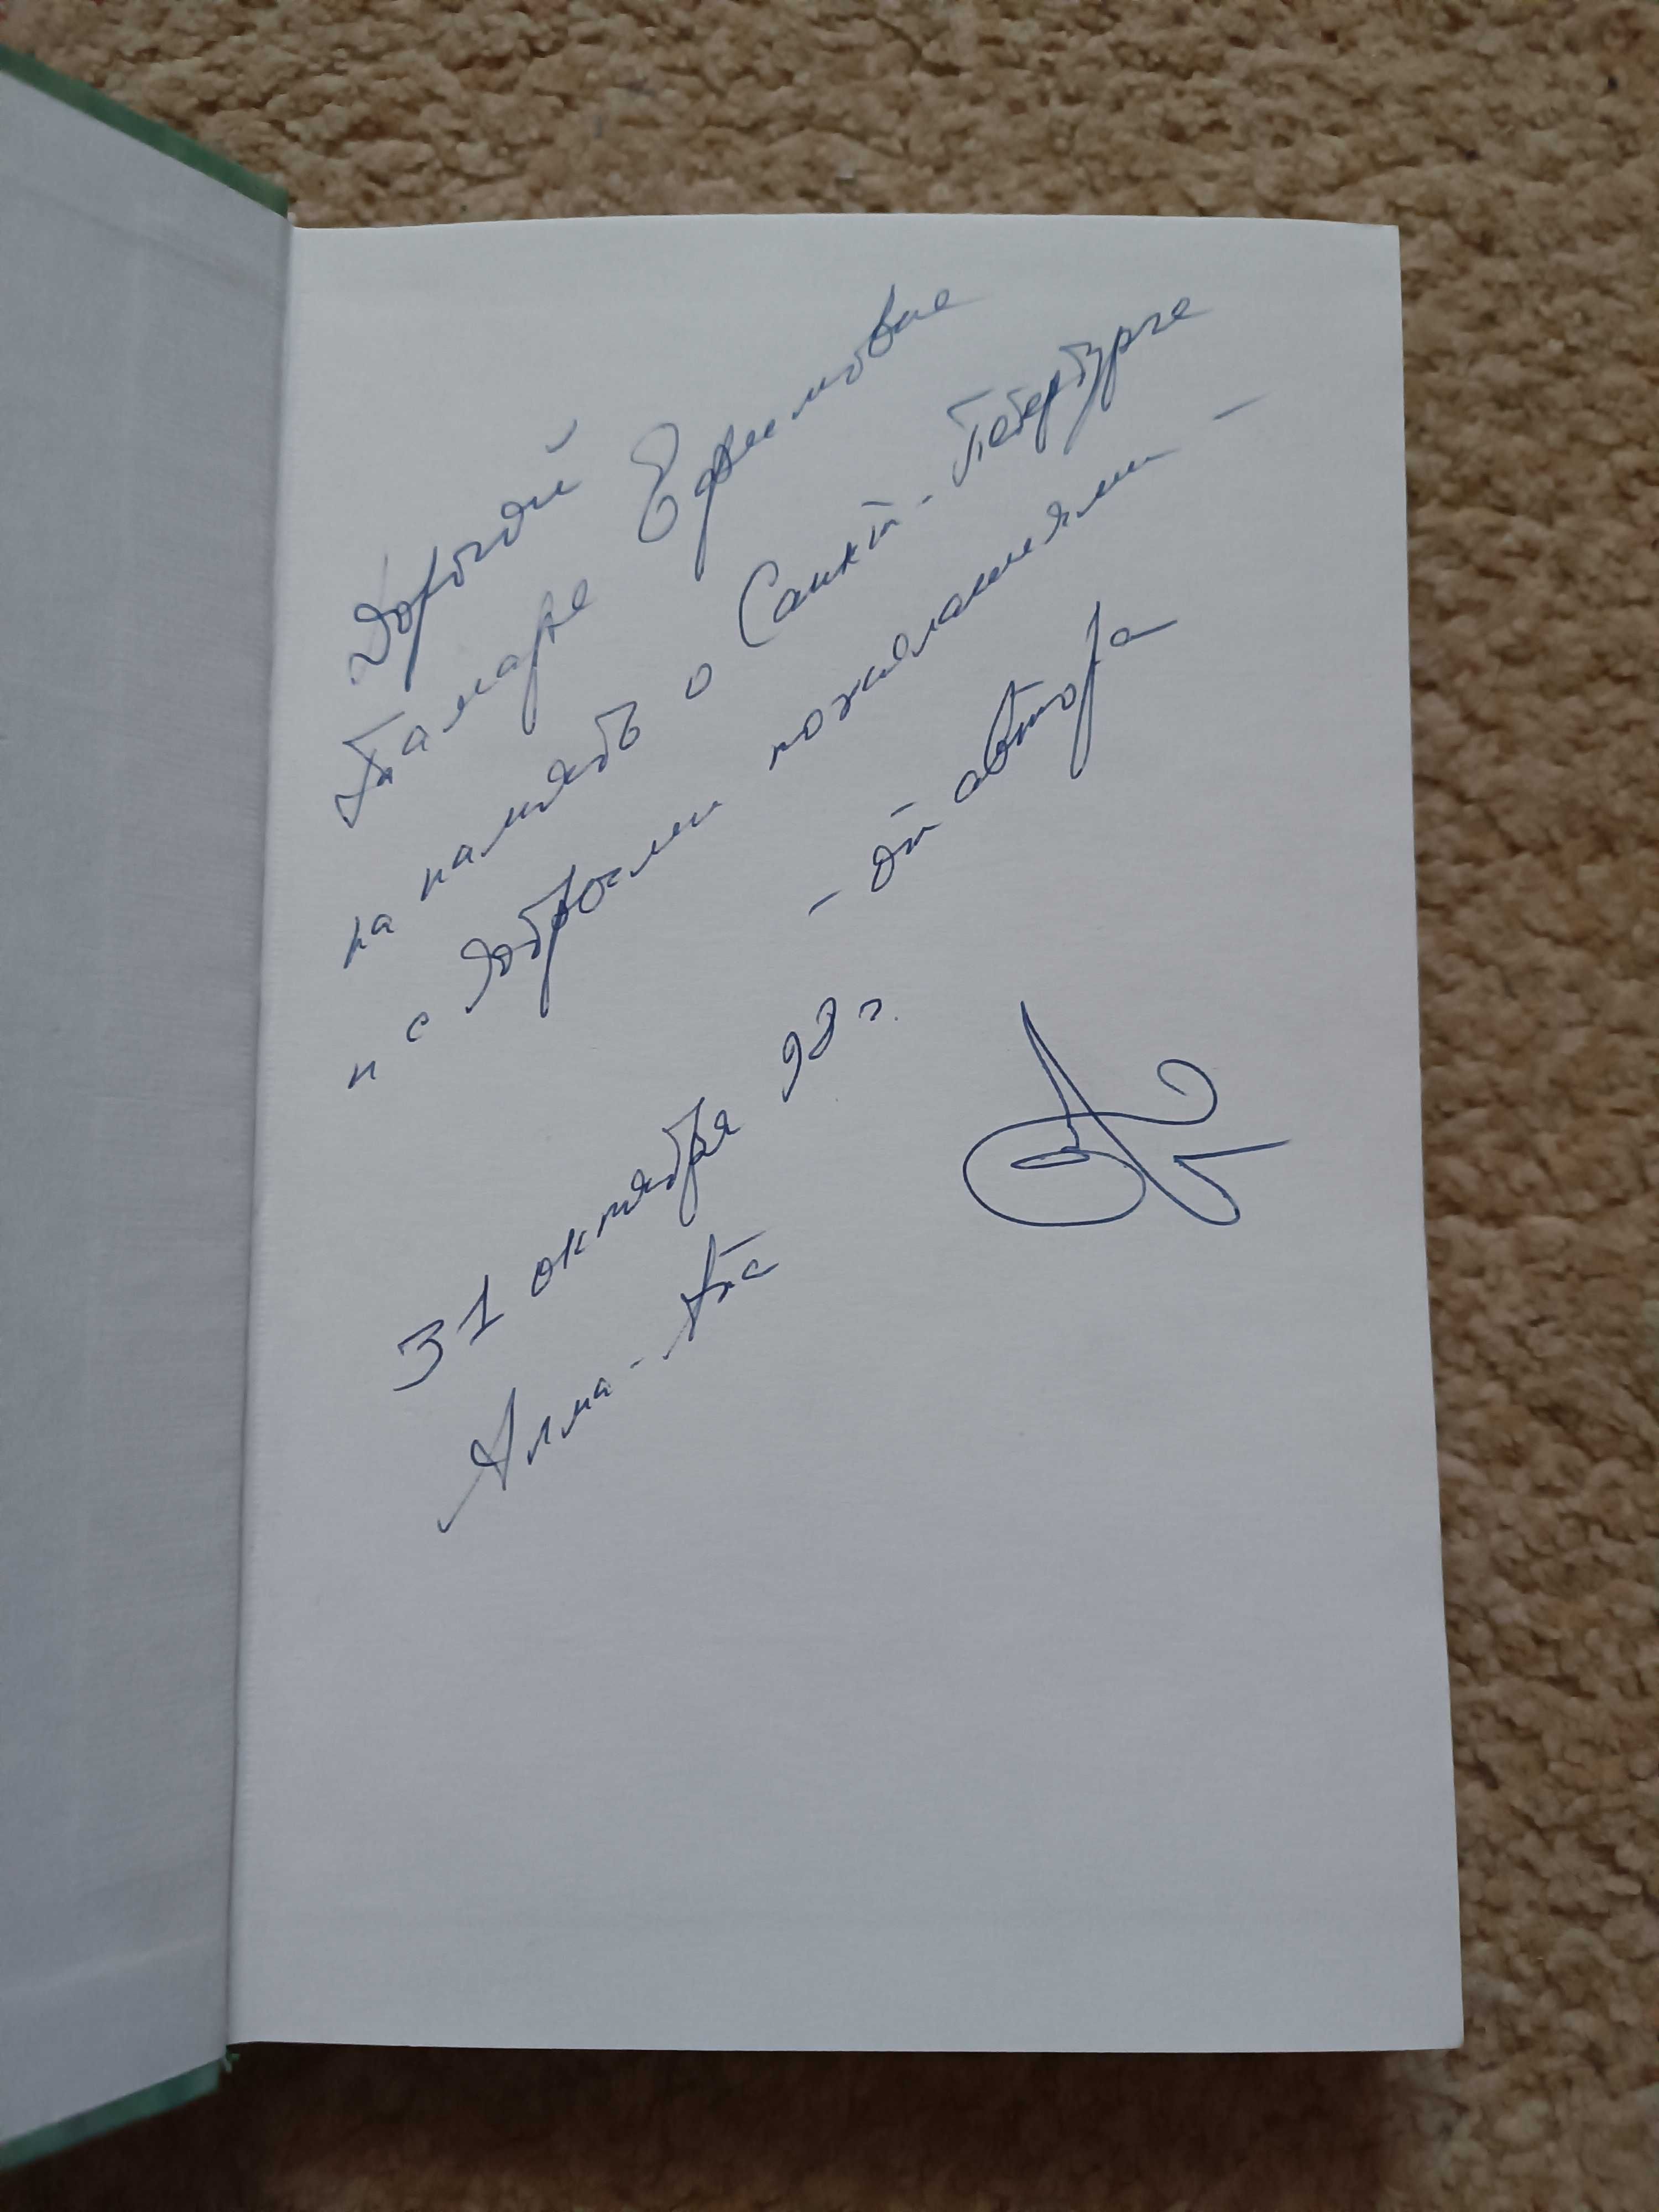 Дорогой
Тамаре Ефимовне
на память о Санкт-Петербурге
и с добрыми пожеланиями -
- от автора
31 октября 98 г.
Алма-Ата